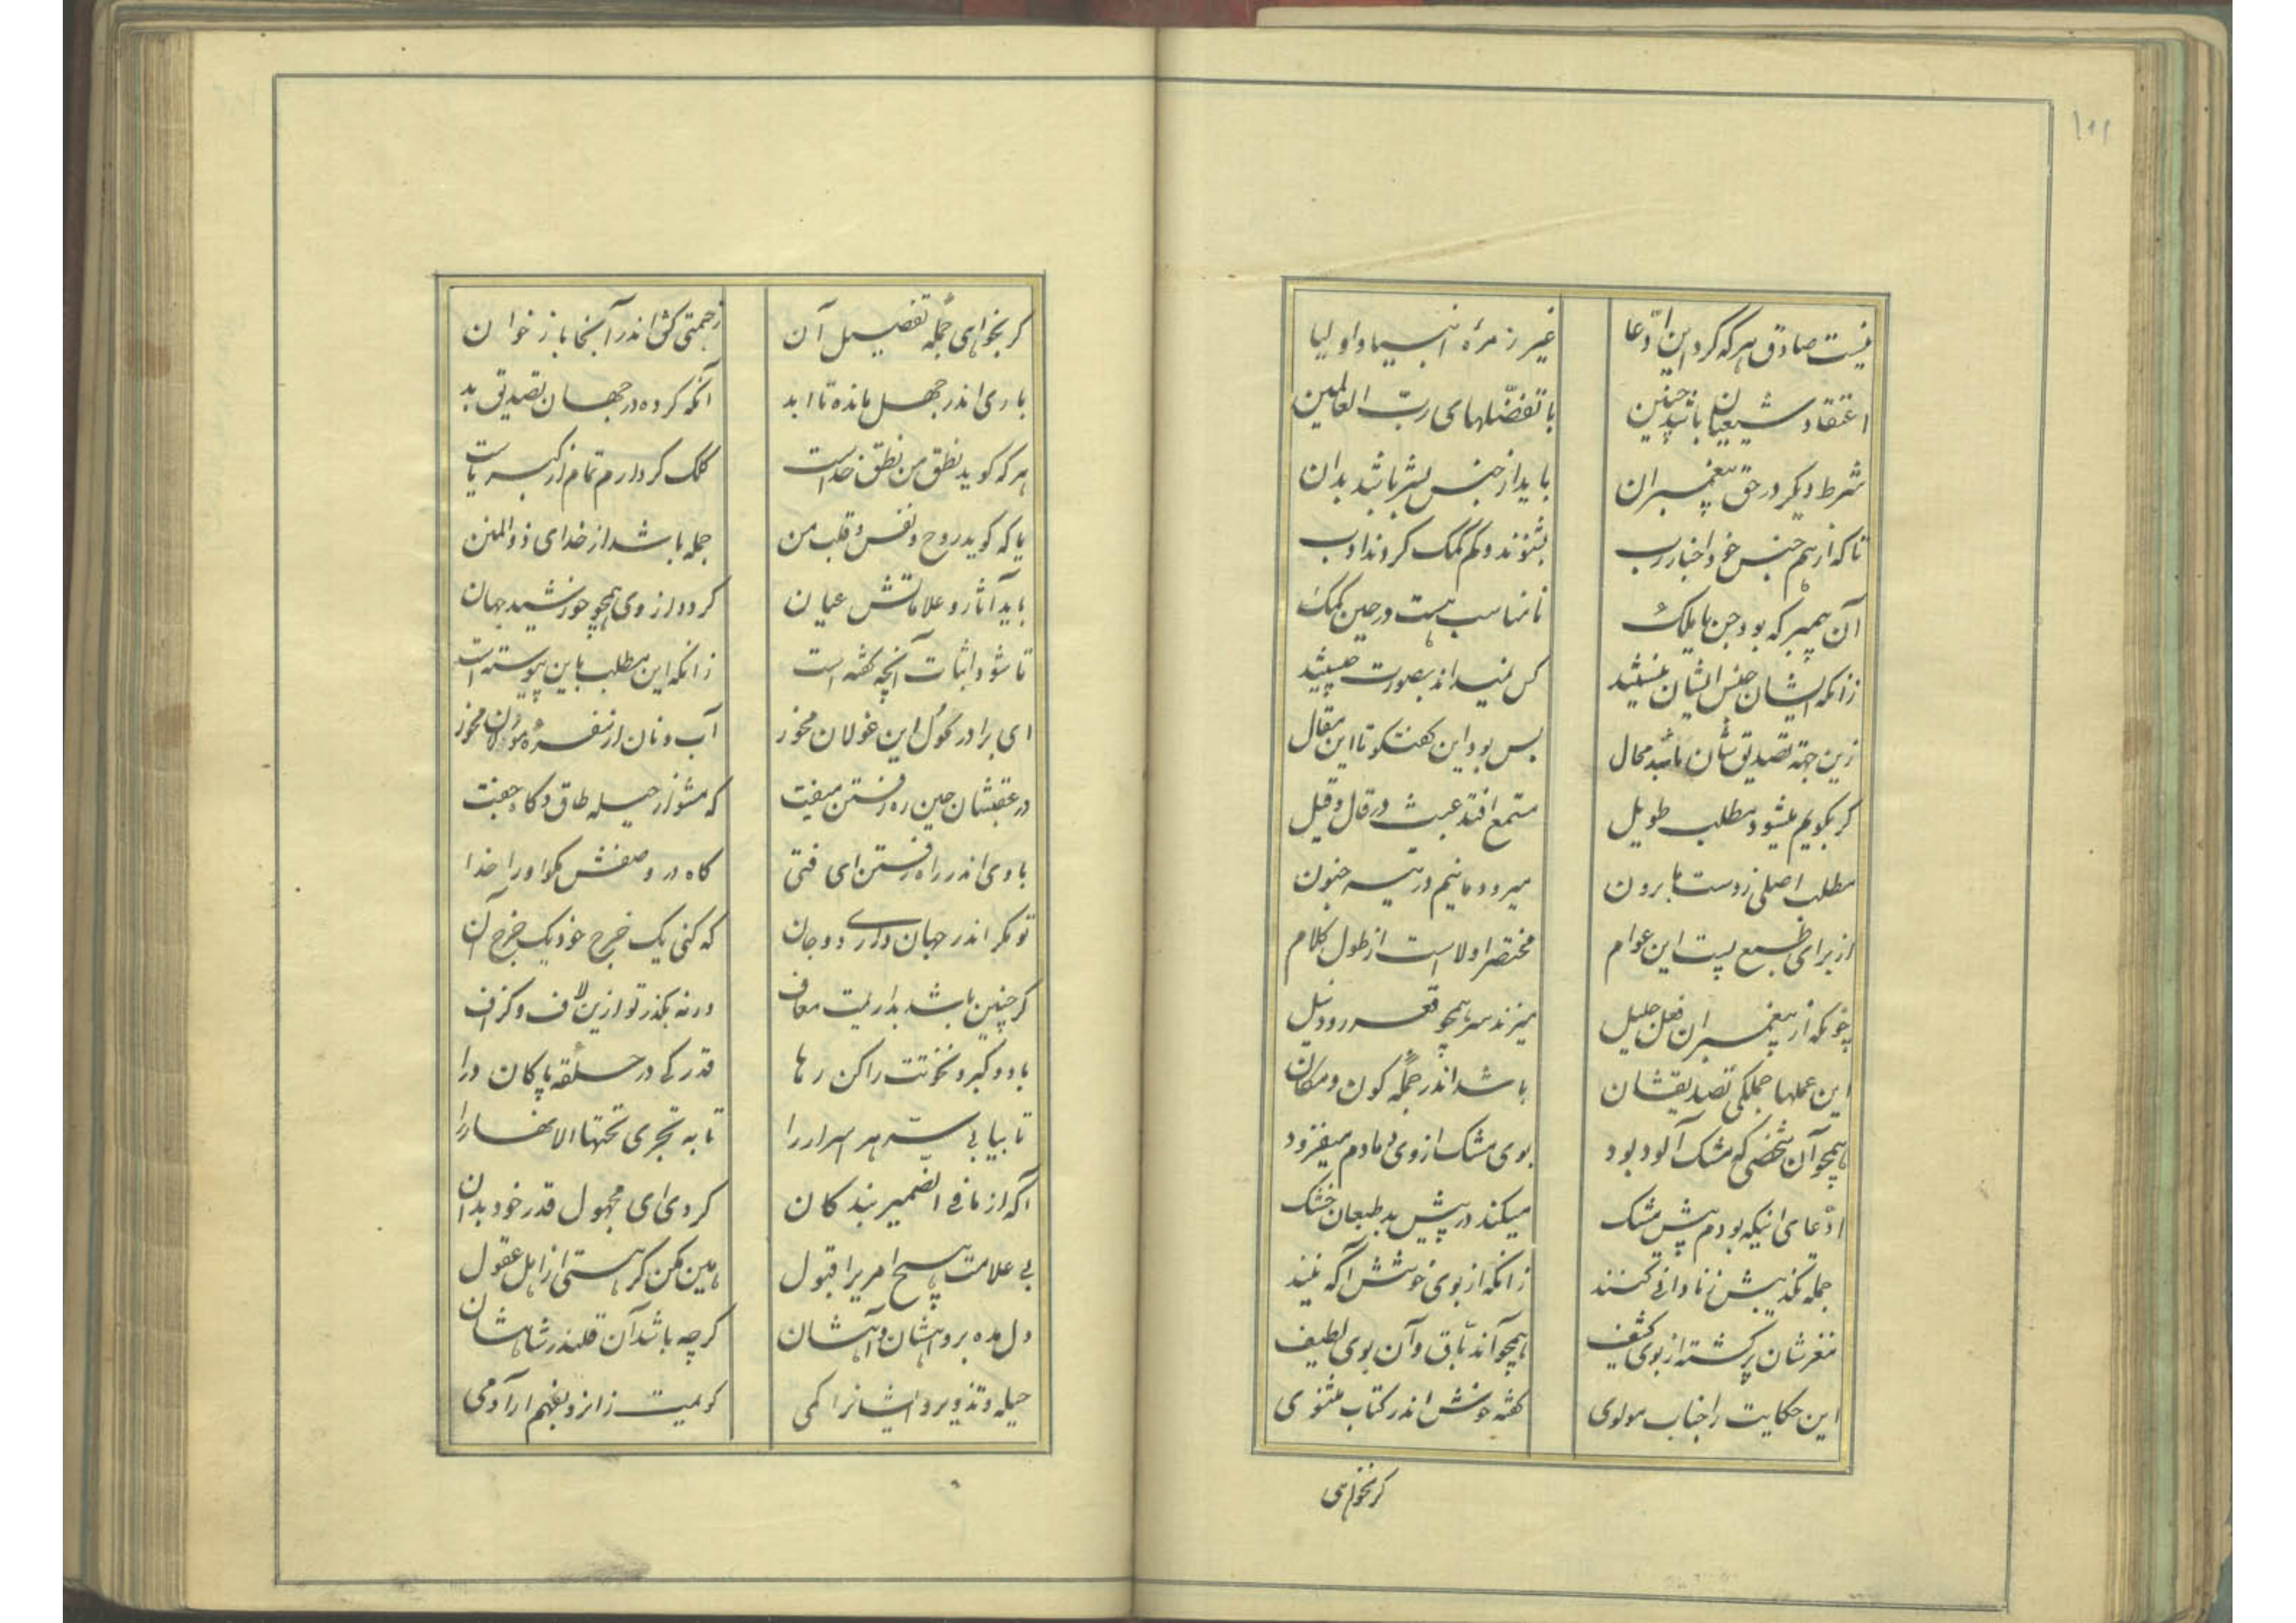 ۱۰۱
نیست صادق هر که کرد این ادّعا غیر زمرهٔ انبیا و اولیا
اعتقاد شیعیان باشد چنین با تفضّلهای ربّ العالمین
شرط دیکر در حق پیغمبران باید از جنس بشر باشد بدان
تا که از هم جنس خود اخبار رب بشنوند و کم کمک کردند ادب
آن پیمبر که بود جن یا ملک نامناسب هست در حین کمک
زانکه ایشان جنس ایشان نیستند کس نمیداند بصورت چیستند
زین جهة تصدیق شان باشد محال بس بود این کفتکو تا این مقال
کر بکویم میشود مطلب طویل مستمع افتد عبث در قال و قیل
مطلب اصلی ز دست ما برون میرود مانیم در تیه جنون
از برای طبع پست این عوام مختصر اولا است از طول کلام
چونکه از پیغمبران فعل جلیل میزند سر همچو قعر رود نیل
این عملها جملکی تصدیقشان باشد اندر جملهٔ کون و مکان
همچو آن شخصی که مشک آلود بود بوی مشک از وی دمادم میفزود
ادّعای اینکه بودم پیش مشک میکند در پیش بد طبعان خشک
جمله تکذیبش ز نادانی کنند زانکه از بوی خوشش آکه نیند
مغزشان پر کشته از بوی کثیف همچو آن دبّاق و آن بوی لطیف
این حکایت را جناب مولوی کفته خوش اندر کتاب مثنوی
کر بخواهی
کر بخواهی جمله تفصیل آن زحمتی کش اندر آنجا باز خوان
باری اندر جهل مانده تا ابد آنکه کرده در جهان تصدیق بد
هر که کوید نطق من نطق خداست کلک کردارم تمام از کبریاست
یا که کوید روح و نفس و قلب من جمله باشد از خدای ذوالمنن
باید آثار و علاماتش عیان کردد از وی همچو خورشید جهان
تا شود اثبات آنچه کفته است زانکه این مطلب باین پیوسته است
ای برادر کول این غولان مخور آب و نان از سفرهٔ مخور
در عقبشان حین ره رفتن میفت که مشو از حیله طاق و کاه جفت
با وی اندر راه رفتن ای فتی کاه در وصفش مکو او را خدا
تو مکر اندر جهان داری دو جان که کنی یک خرج خود یک خرج آن
کر چنین باشد بداریمت معاف ورنه بکذر تو ازین لاف و کزاف
باد و کبر و نخوتت را کن رها قدرکی در حلقهٔ پاکان درا
تا بیابی سرّ هر اسرار را تا به تجری تحتها الانهار را
آکه از ما فی الضمیر بندکان کردی ای مجهول قدر خود بدان
بی علامت هیچ امریرا قبول هین مکن کر هستی از اهل عقول
دل مده بر و آنشان کرچه باشد آن قلندر شاهشان
حیله و تذویر و ایشانرا کمی کو میت زانرو بفهم ار آدمی